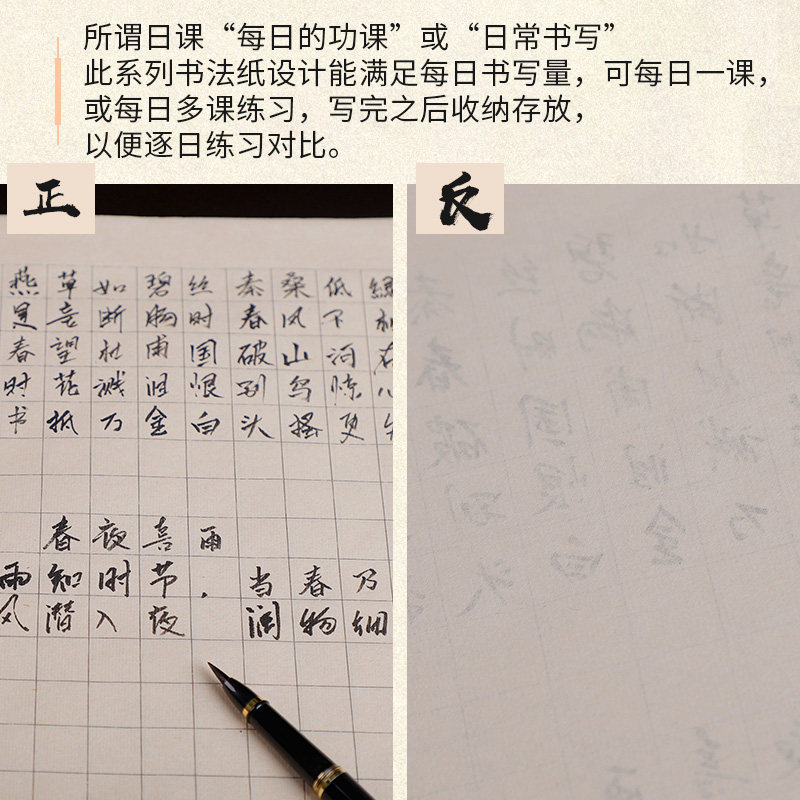 所谓日课“每日的功课”或“日常书写”
此系列书法纸设计能满足每日书写量，可每日一课，
或每日多课练习，写完之后收纳存放，
以便逐日练习对比。
正
反
燕草如碧丝秦桑低绿
是妾断肠时春风不
春望杜甫国破山河在
时花溅泪恨别鸟惊心
书抵万金白头搔更
春夜喜雨
雨知时节，当春乃
风潜入夜润物细